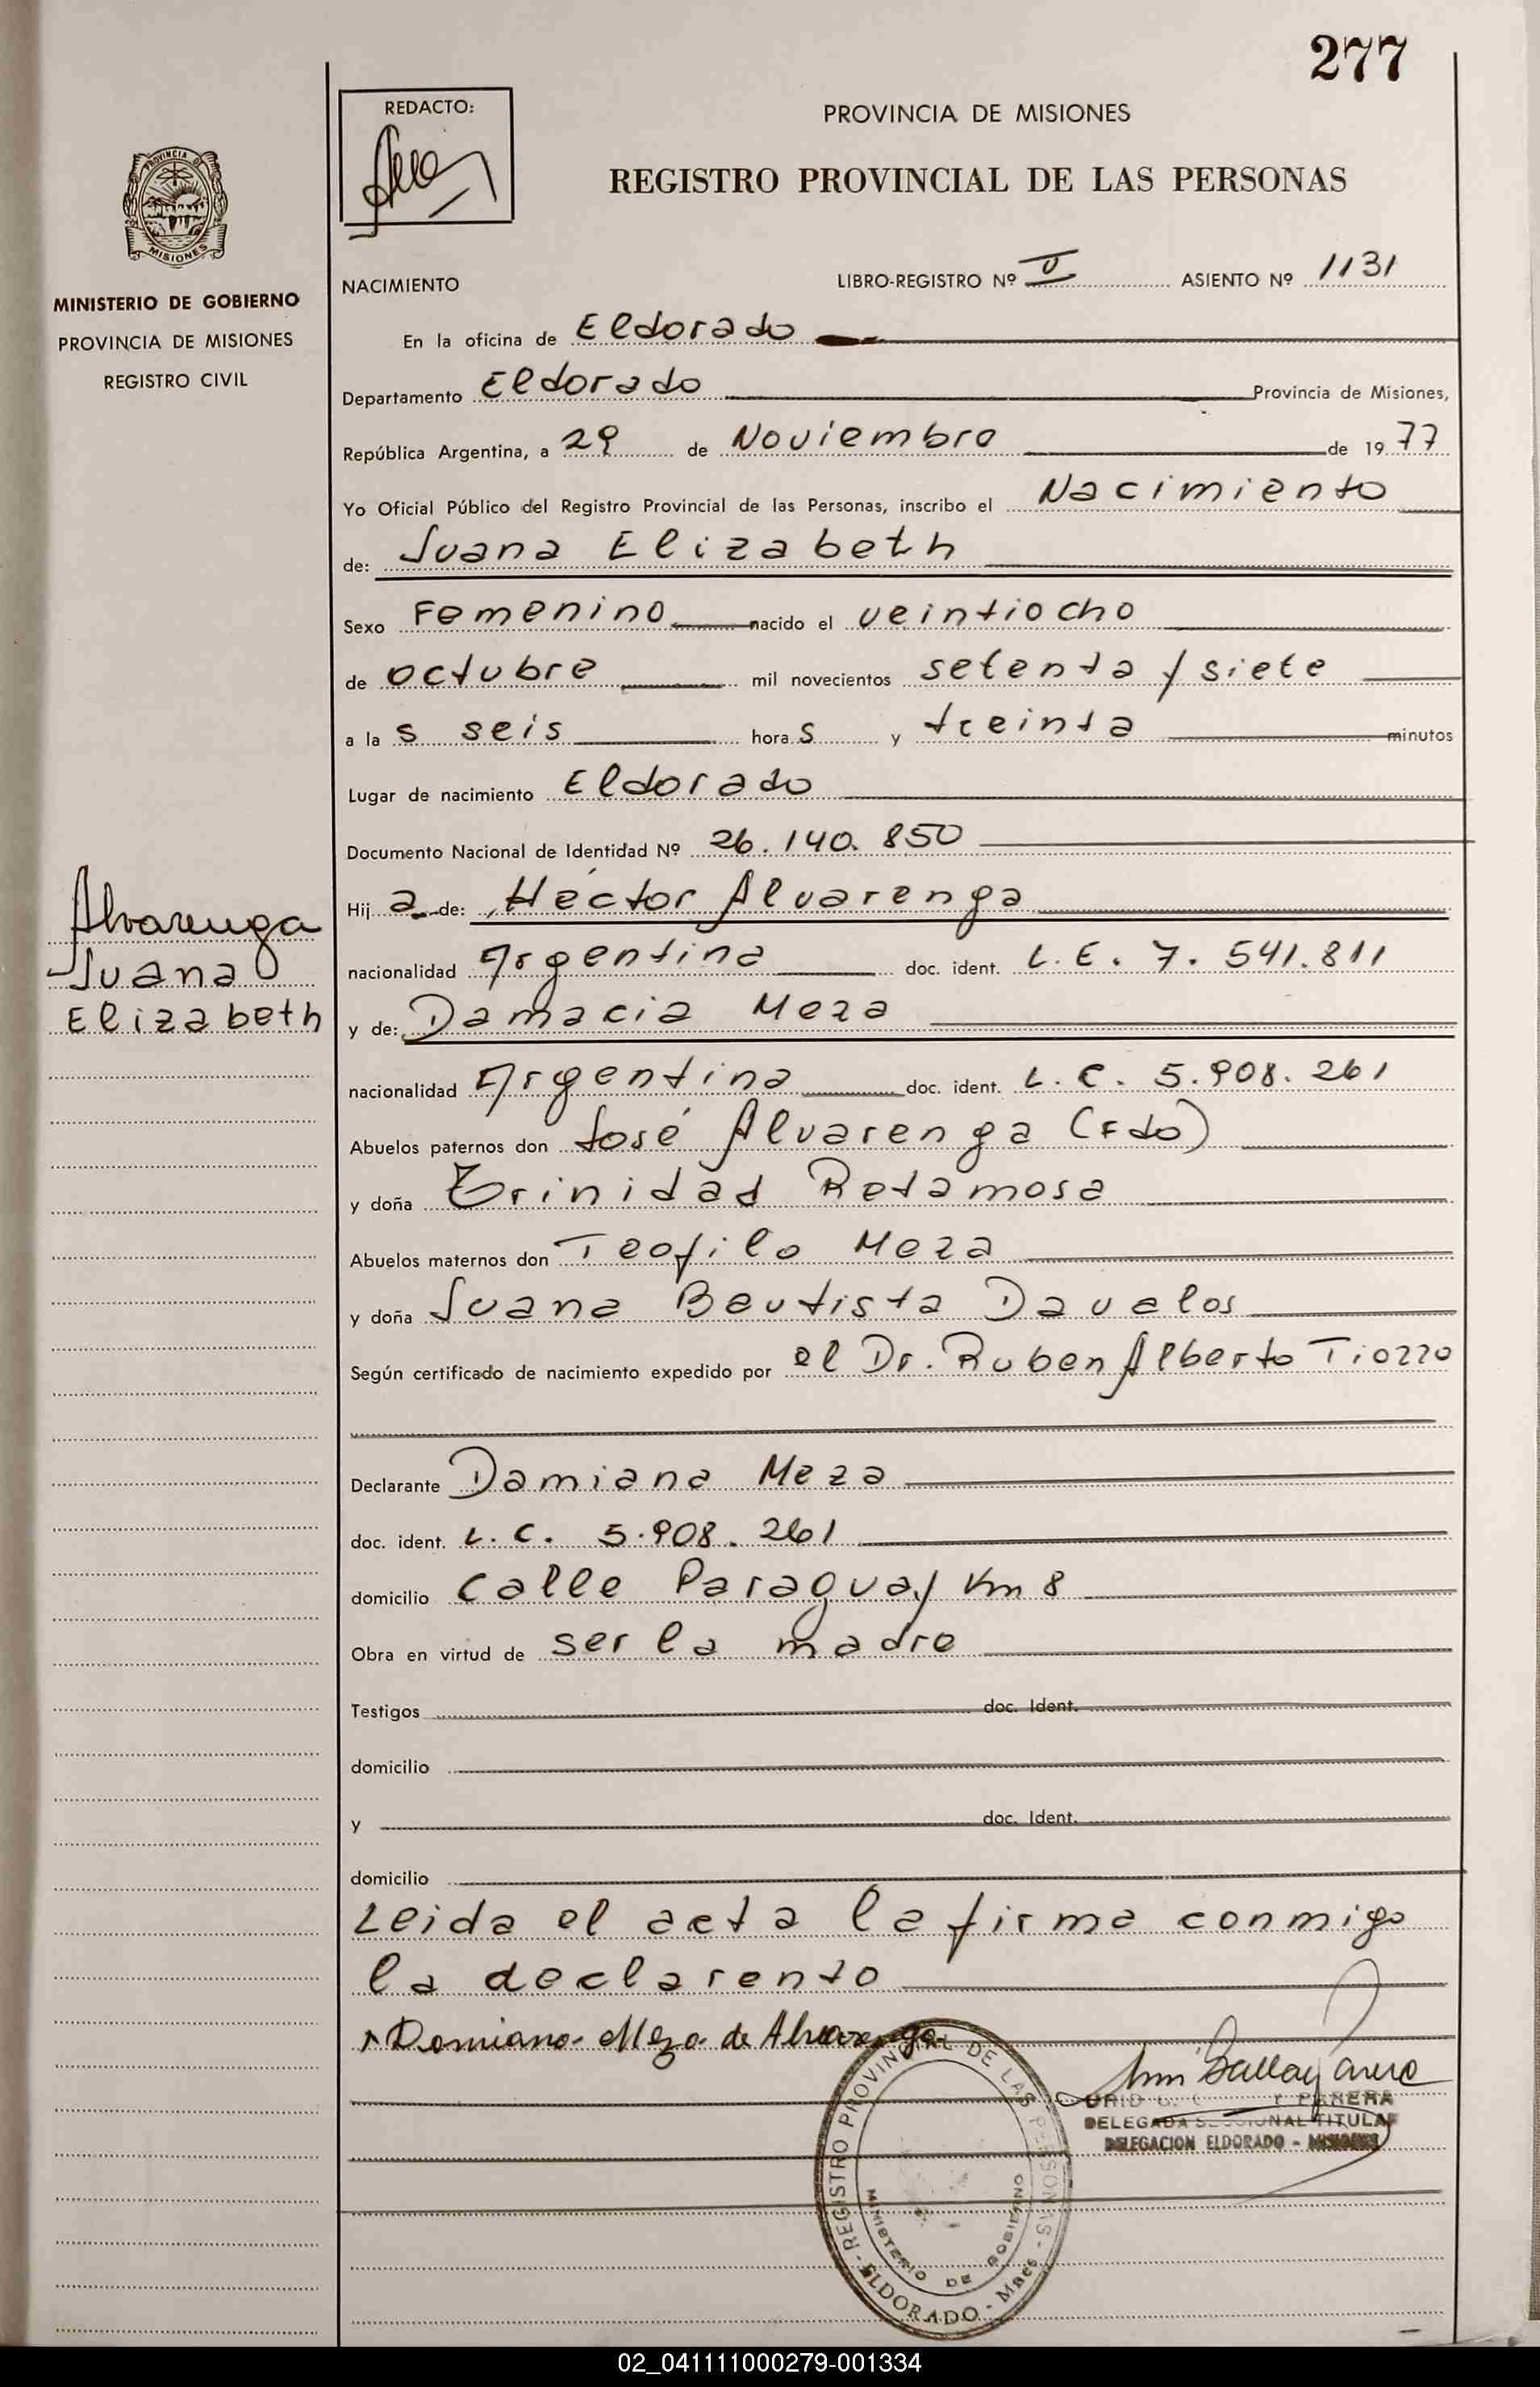 277
REDACTO:
PROVINCIA DE MISIONES
REGISTRO PROVINCIAL DE LAS PERSONAS
PROVINCIA DE
MISIONES
MINISTERIO DE GOBIERNO
PROVINCIA DE MISIONES
REGISTRO CIVIL
NACIMIENTO LIBRO-REGISTRO Nº II ASIENTO Nº 1131
En la oficina de Eldorado
Departamento Eldorado Provincia de Misiones,
República Argentina, a 29 de Noviembre de 1977
Yo Oficial Público del Registro Provincial de las Personas, inscribo el Nacimiento
de: Juana Elizabeth
Sexo Femenino nacido el veintiocho
de octubre mil novecientos setenta y siete
a las seis horas y treinta minutos
Lugar de nacimiento Eldorado
Documento Nacional de Identidad Nº 26.140.850
Alvarenga
Juana
Elizabeth
Hija de: Héctor Alvarenga
nacionalidad Argentina doc. ident. L.E. 7.541.811
y de: Damacia Meza
nacionalidad Argentina doc. ident. L.C. 5.908.261
Abuelos paternos don José Alvarenga (Fdo)
y doña Trinidad Retamosa
Abuelos maternos don Teofilo Meza
y doña Juana Bautista Davalos
Según certificado de nacimiento expedido por el Dr. Ruben Alberto Tiozzo
Declarante Damiana Meza
doc. ident. L.C. 5.908.261
domicilio Calle Paraguay Km 8
Obra en virtud de ser la madre
Testigos doc. Ident.
domicilio
y doc. Ident.
domicilio
Leida el acta la firma conmigo
la declarante
Damiana Meza de Alvarenga
REGISTRO PROVINCIAL DE LAS PERSONAS - ELDORADO - Mnes
MINISTERIO DE GOBIERNO
PARERA
DELEGADA SECCIONAL TITULAR
DELEGACION ELDORADO - MISIONES
02_041111000279-001334